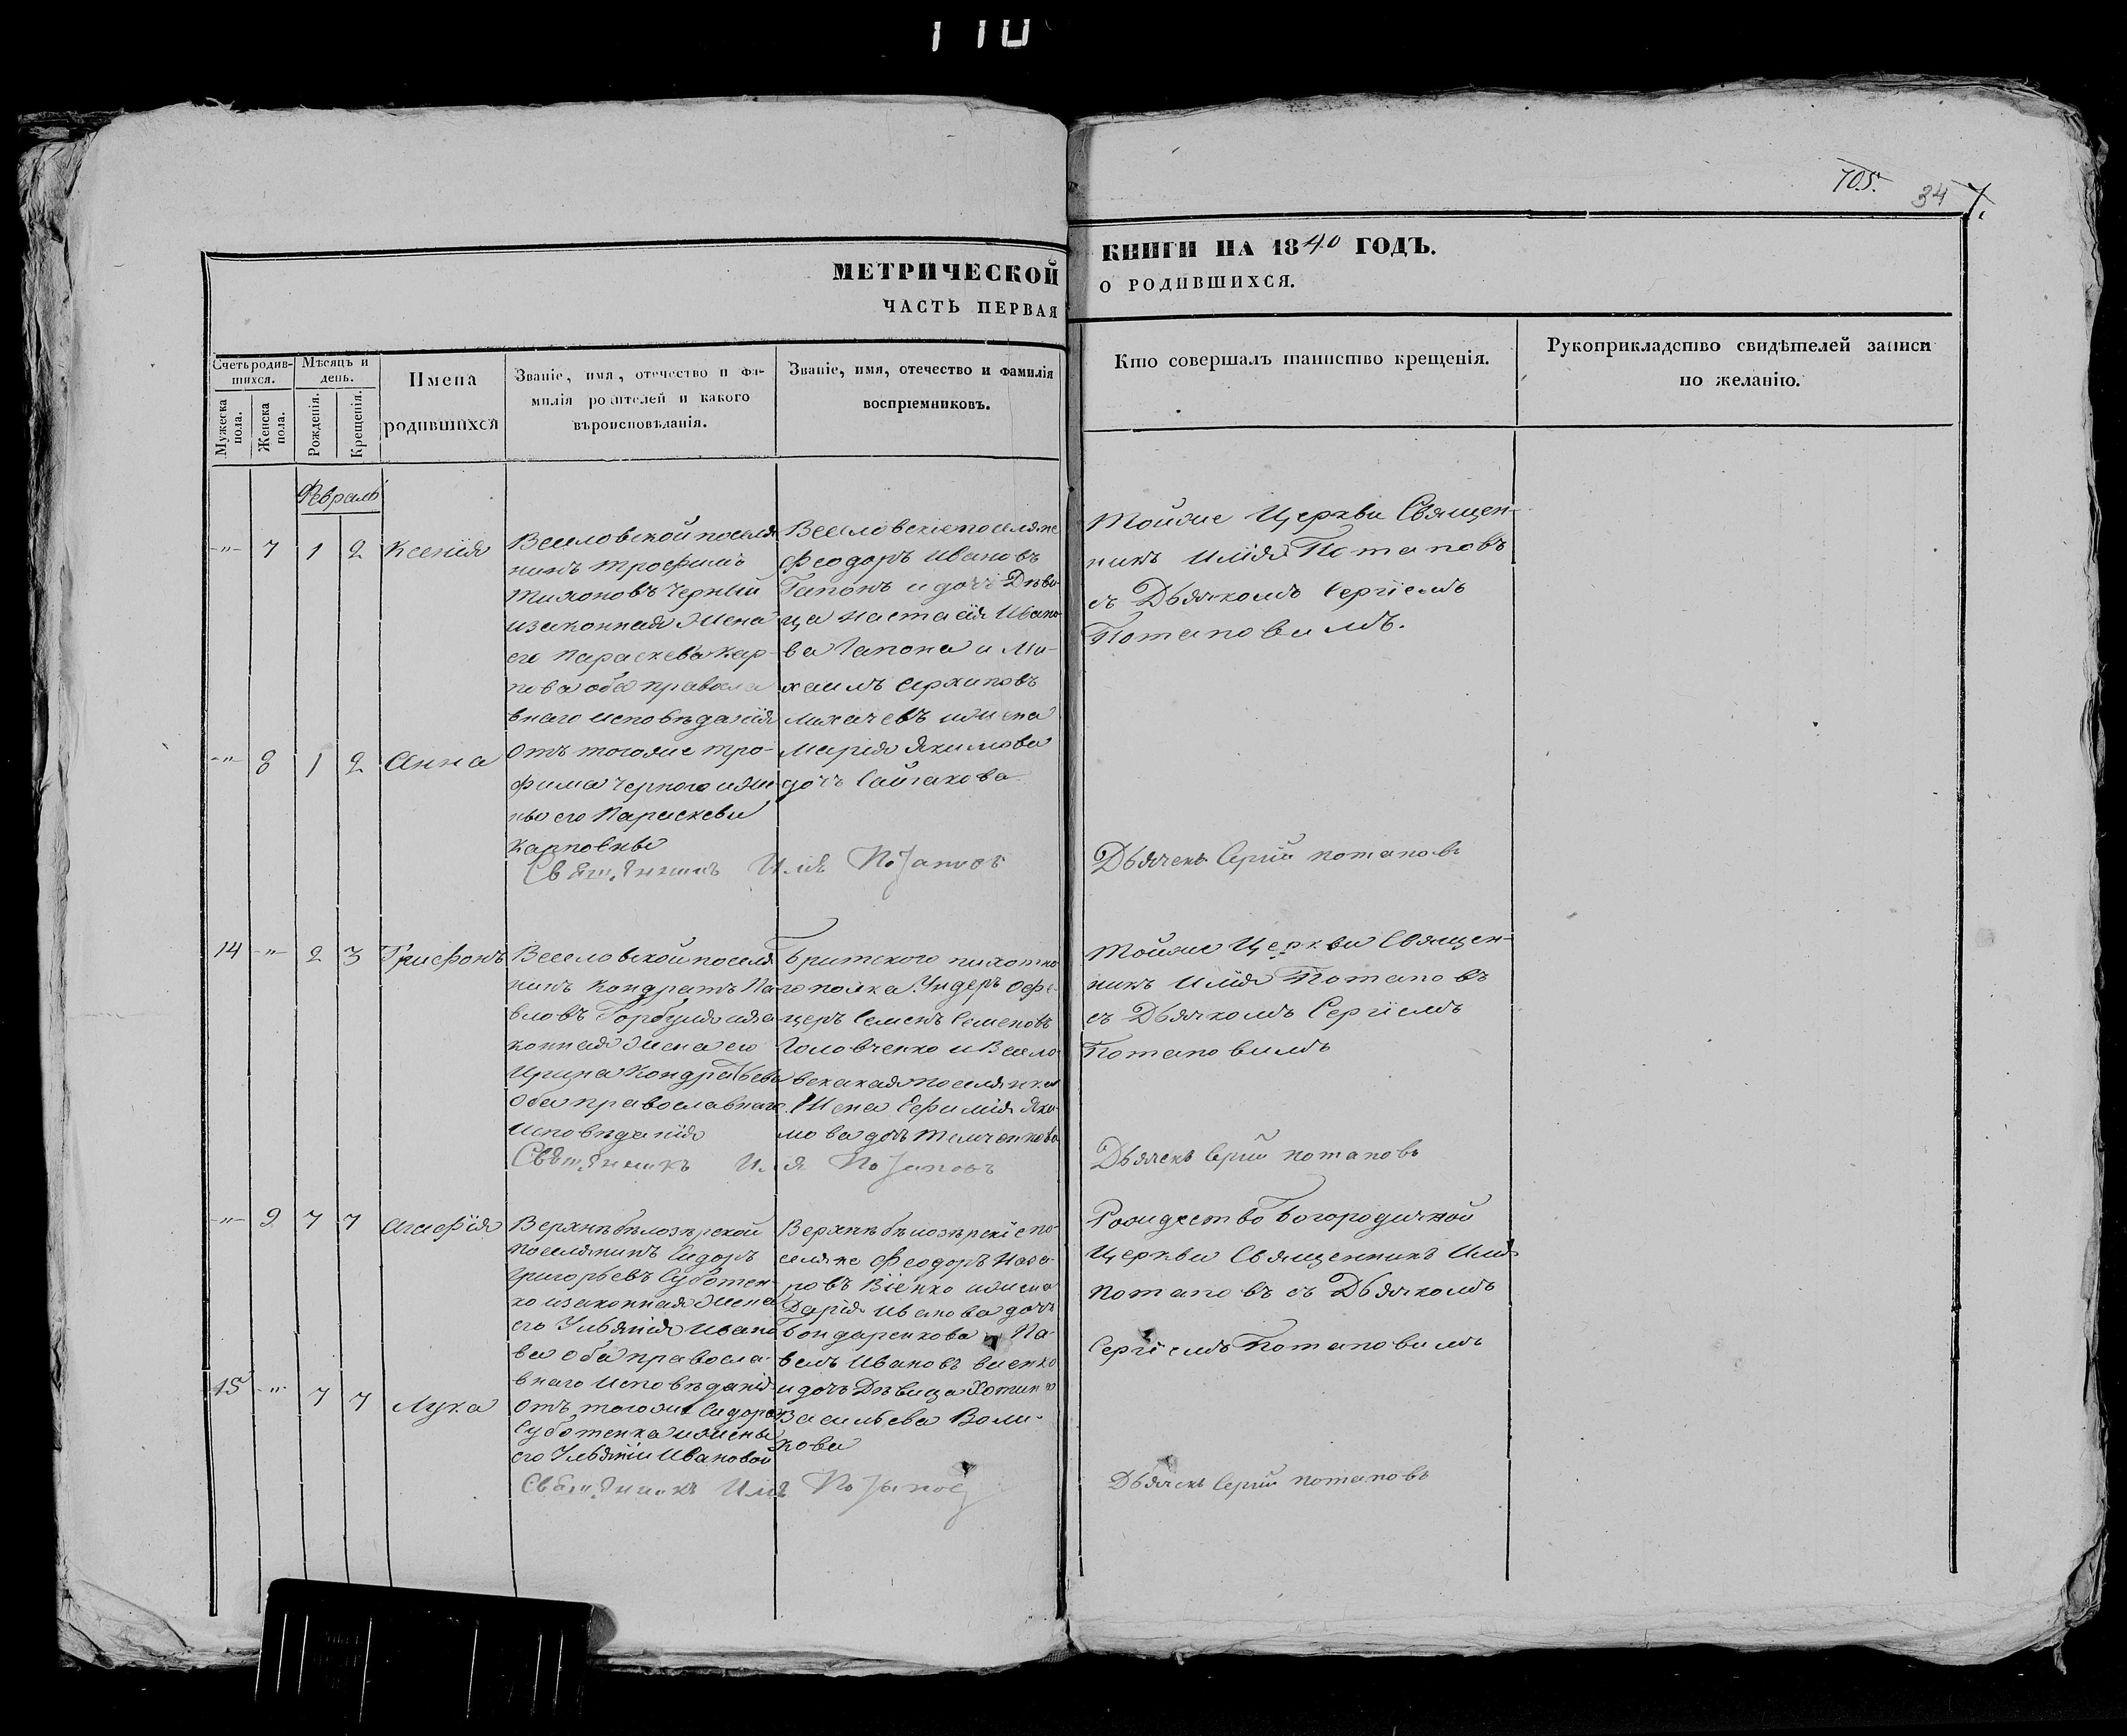 110
705.
34 7.
МЕТРИЧЕСКОЙ
ЧАСТЬ ПЕРВАЯ
КНИГИ НА 1840 ГОДЪ.
О РОДИВШИХСЯ.
Счетъ родив-
шихся.
Мужеска
пола.
Женска
пола.
Мѣсяцъ и
день.
Рожденія.
Крещенія.
Имена
родившихся
Званіе, имя, отечество и фа-
милія родителей и какого
вѣроисповѣданія.
Званіе, имя, отечество и фамилія
воспріемниковъ.
Кто совершалъ таинство крещенія.
Рукоприкладство свидѣтелей записи
по желанію.
Февраль
-"- 7 1 2 Ксенія
Веселовской поселя
нинъ Трофимъ
Тихоновъ Черный
изаконная жена
его Параскева Кар-
пова оба правосла
внаго исповѣданія
Веселовскіе поселяне
Феодоръ Ивановъ
Гапонъ и дочь Дѣви-
ца Настасія Ивано-
ва Гапона и Ми-
хаилъ Архиповъ
Михачевъ ижена
Марія Якимова
дочь Сайгакова
Тойже Церкви Священ-
никъ Илія Потаповъ
съ Дьячкомъ Сергіемъ
Потаповимъ.
-"- 8 1 2 Анна
Отъ тогоже Тро-
фима Черного ижи-
ны его Параскеви
Карповны
Священникъ Илія Потаповъ
Дьячекъ Сергій Потаповъ
14 -"- 2 3 Трифонъ
Веселовской поселя
нинъ Кондратъ Па-
вловъ Горбуля иза-
конная жена его
Ирина Кондратьева
Оба православнаго
Исповѣданія
пихотно
го полка Ундеръ Офе-
церъ Семенъ Семеновъ
Головченко и Весело
вскакая поселянка
Жена Ефимія Яки-
мова дочь
Тойже Церкви Священ-
никъ Илія Потаповъ
съ Дьячкомъ Сергіемъ
Потаповимъ
Священникъ Илія Потаповъ
Дьячекъ Сергій Потаповъ
-"- 9 7 7 Агафія
Верхнѣбѣлозѣрской
поселянинъ Сидоръ
Григорьевъ Суботен-
ко изаконная жена
его Ульянія Ивано
ва оба правосла-
внаго Исповѣданія
Верхнѣбѣлозѣрскіе по-
селяне Феодоръ Наза-
ровъ Віенко ижена
Дарія Иванова дочь
Бондаренкова и Па-
велъ Ивановъ Виенко
и дочь Дѣвица
Васильева Воли-
кова
Рождество Богородичной
Церкви Священникъ Илія
Потаповъ съ Дьячкомъ
Сергіемъ Потаповимъ
15 -"- 7 7 Лука
Отъ тогоже Сидора
Суботенка ижены
его Ульяніи Ивановой
Священникъ Илія Потаповъ
Дьячекъ Сергій Потаповъ